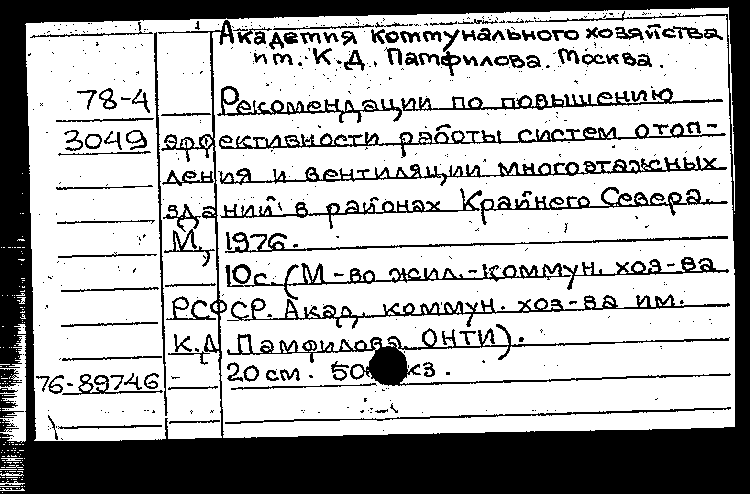 Академия коммунального хозяйства
им. К.Д. Памфилова. Москва.
78-4 Рекомендации по повышению
3049 эффективности работы систем отоп-
ления и вентиляции многоэтажных
зданий в районах Крайнего Севера.
М., 1976.
10с. (М-во жил.-коммун. хоз-ва
РСФСР. Акад. коммун. хоз-ва им.
К.Д. Памфилова. ОНТИ).
76-89746 20 см.